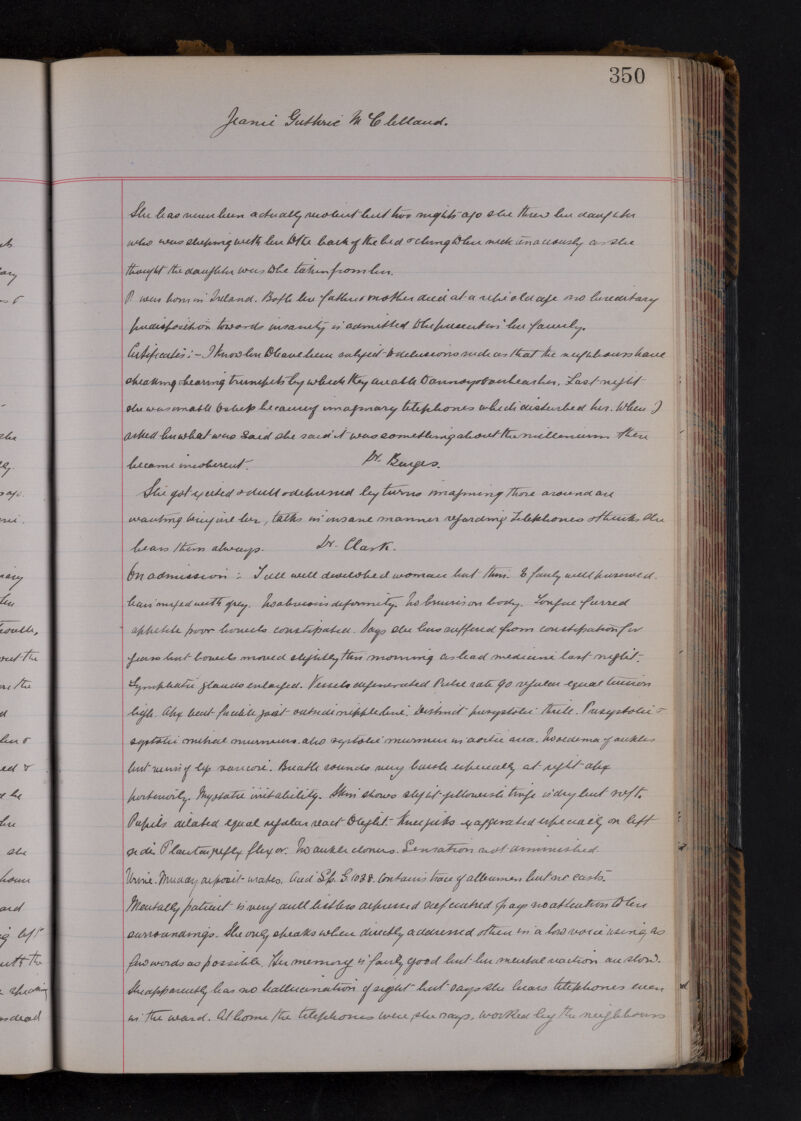 350
Jeanie Guthrie McClelland.
She has never been actually violent but two nights ago she threw her daughter
who was sleeping with her to the back of the bed & clung to her neck as she
thought the daughter was to be taken from her.
P. was born in Ireland. Both her father & mother died at a ripe old age no hereditary
predisposition towards insanity is admitted to be present in her family.
Certificates:- I know her to have been subject to delusions such as that the neighbours have
speaking & hearing trumpets by which they are able to annoy & overhear her. Last night
she was unable to sleep because of imaginary telephones which disturbed her. When I
asked her what was said she said it was something about the millenium then
became incoherent. Dr. Burges.
She got excited & dull & depressed by turns imagining those around are
wanting to injure her, talks in insane manner regarding Telephones & thinks she
hears them always. Dr. Clark.
On admission: Tall well developed woman but thin. & fairly well preserved.
hair mixed with grey. No obvious deformity. No bruises on body. Tongue furred
appetite poor bowels constipated. Says she has suffered from constipation for
years but bowels moved slightly this morning as had medicine last night.
Lymphatic glands enlarged. Vessels degenerated Pulse rate 90 regular equal tension
high. Apex beat outside nipple line. Distinct presystolic thrill. Presystolic &
systolic mitral murmurs also systolic murmur in aortic area. No oedema of ankles
but veins of leg varicose. Breath sounds very harsh especially at right apex
posteriorly. Myotatic irritability. Skin shows slight yellowish tinge is dry but soft.
Pupils dilated equal regular react to light. Knee jerks exaggerated especially on left
side. Plantar reflex flexor. No ankle clonus. Sensation not diminished
Urine. Muddy deposit urates. Acid Sp. G. 1028. Contains trace of albumen but no casts.
Mentally patient is very dull listless depressed self centred & pays no attention to her
surroundings. She only speaks when directly addressed & then in a low voice using as
few words as possible. Her memory is fairly good but her mental reaction are slow.
She apparently has no hallucination of sight but says she hears telephones even
in the ward. At home the telephones were, she says, worked by the neighbours